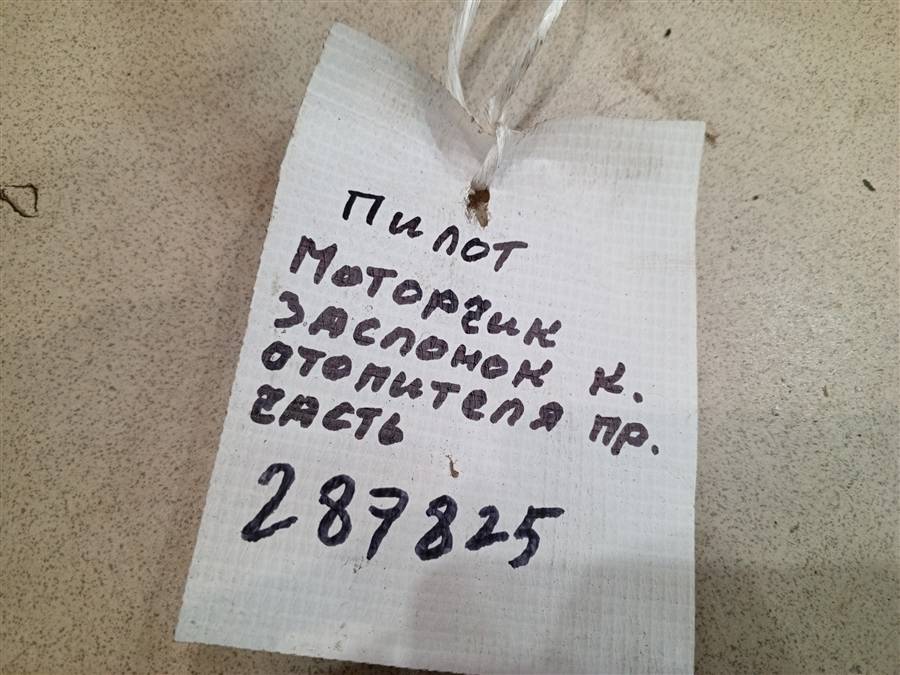 Пилот
Моторчик
заслонок к.
отопителя пр.
часть
287825